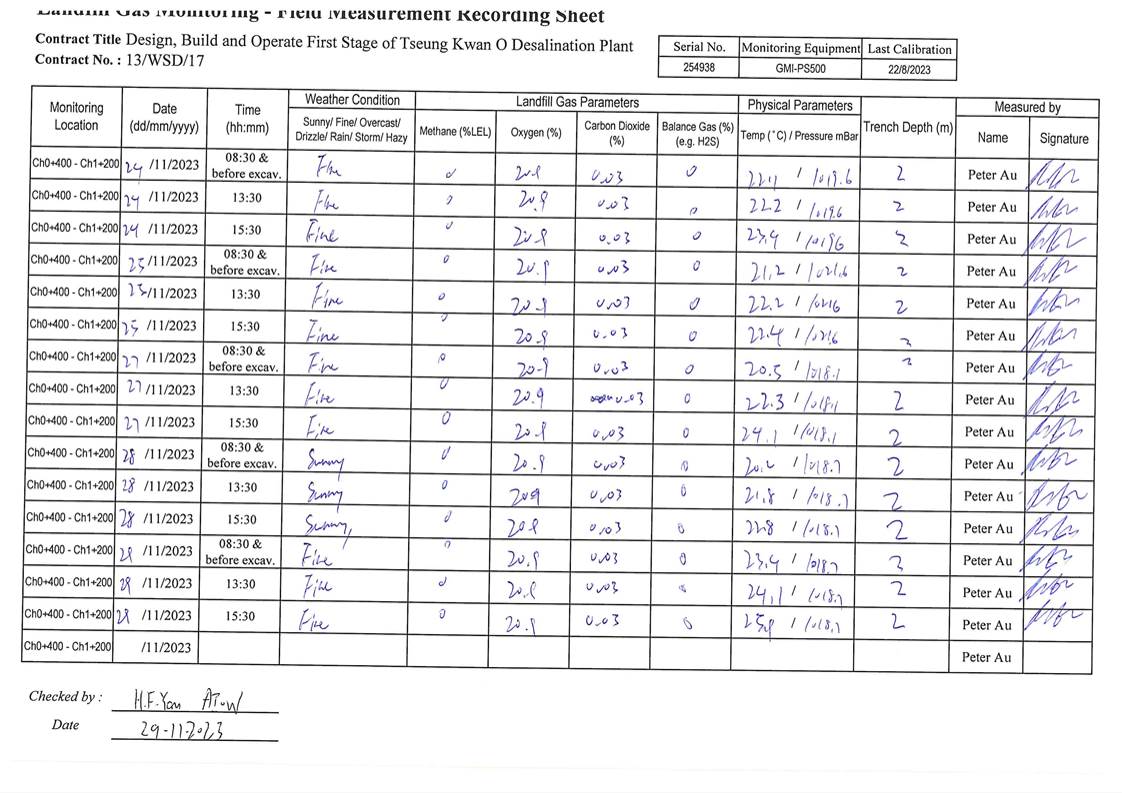 Landfill Gas Monitoring - Field Measurement Recording Sheet
Contract Title Design, Build and Operate First Stage of Tseung Kwan O Desalination Plant
Contract No. : 13/WSD/17
Serial No. Monitoring Equipment Last Calibration
254938 GMI-PS500 22/8/2023
Monitoring Location Date (dd/mm/yyyy) Time (hh:mm) Weather Condition Sunny/ Fine/ Overcast/ Drizzle/ Rain/ Storm/ Hazy Landfill Gas Parameters Methane (%LEL) Oxygen (%) Carbon Dioxide (%) Balance Gas (%) (e.g. H2S) Physical Parameters Temp (°C) / Pressure mBar Trench Depth (m) Measured by Name Signature
Ch0+400 - Ch1+200 24 /11/2023 08:30 & before excav. Fine 0 20.9 0.03 0 22.1 / 1019.6 2 Peter Au
Ch0+400 - Ch1+200 24 /11/2023 13:30 Fine 0 20.9 0.03 0 22.2 / 1019.6 2 Peter Au
Ch0+400 - Ch1+200 24 /11/2023 15:30 Fine 0 20.9 0.03 0 23.4 / 1019.6 2 Peter Au
Ch0+400 - Ch1+200 25 /11/2023 08:30 & before excav. Fine 0 20.9 0.03 0 21.2 / 1021.6 2 Peter Au
Ch0+400 - Ch1+200 25 /11/2023 13:30 Fine 0 20.9 0.03 0 22.2 / 1021.6 2 Peter Au
Ch0+400 - Ch1+200 25 /11/2023 15:30 Fine 0 20.9 0.03 0 22.4 / 1021.6 2 Peter Au
Ch0+400 - Ch1+200 27 /11/2023 08:30 & before excav. Fine 0 20.9 0.03 0 20.5 / 1018.1 2 Peter Au
Ch0+400 - Ch1+200 27 /11/2023 13:30 Fine 0 20.9 0.03 0 22.3 / 1018.1 2 Peter Au
Ch0+400 - Ch1+200 27 /11/2023 15:30 Fine 0 20.9 0.03 0 24.1 / 1018.1 2 Peter Au
Ch0+400 - Ch1+200 28 /11/2023 08:30 & before excav. Sunny 0 20.9 0.03 0 20.2 / 1018.7 2 Peter Au
Ch0+400 - Ch1+200 28 /11/2023 13:30 Sunny 0 20.9 0.03 0 21.8 / 1018.7 2 Peter Au
Ch0+400 - Ch1+200 28 /11/2023 15:30 Sunny 0 20.9 0.03 0 22.8 / 1018.7 2 Peter Au
Ch0+400 - Ch1+200 29 /11/2023 08:30 & before excav. Fine 0 20.9 0.03 0 23.4 / 1018.7 2 Peter Au
Ch0+400 - Ch1+200 29 /11/2023 13:30 Fine 0 20.9 0.03 0 24.1 / 1018.7 2 Peter Au
Ch0+400 - Ch1+200 29 /11/2023 15:30 Fine 0 20.9 0.03 0 / 1018.7 2 Peter Au
Ch0+400 - Ch1+200 /11/2023 Peter Au
Checked by : H.F.Yan
Date 29-11-2023